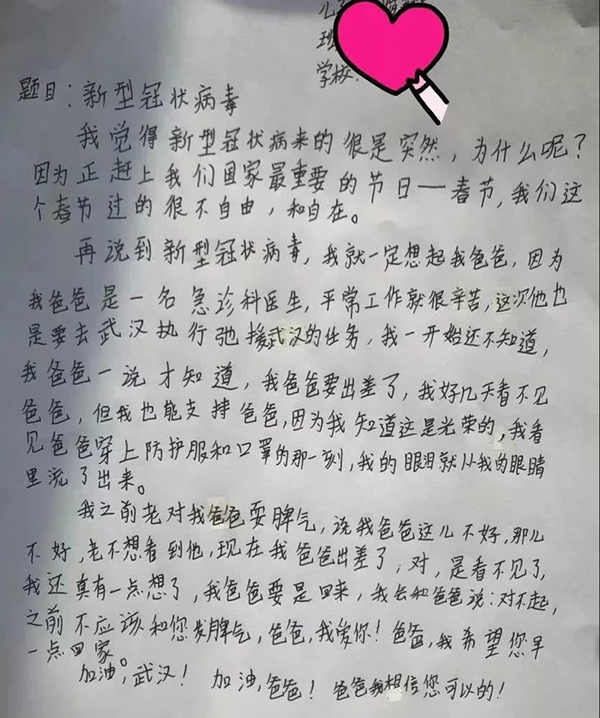 班
学校:
题目：新型冠状病毒
我觉得新型冠状病来的很是突然，为什么呢？
因为正赶上我们国家最重要的节日一春节，我们这
个春节过的很不自由，和自在。
再说到新型冠状病毒，我就一定想起我爸爸，因为
我爸爸是一名急诊科医生，平常工作就很辛苦，这次他也
是要去武汉执行弛援武汉的任务，我一开始还不知道，
我爸爸一说才知道，我爸爸要出差了，我好几天看不见
爸爸，但我也能支持爸爸，因为我知道这是光荣的，我看
见爸爸穿上防护服和口罩的那一刻，我的眼泪就从我的眼睛
里流了出来。
我之前老对我爸爸耍脾气，说我爸爸这儿不好，那儿
不好，老不想看到他，现在我爸爸出差了，对，是看不见了，
我还真有一点想了，我爸爸要是回来，我会和爸爸说：对不起，
之前不应该和您发脾气，爸爸，我爱你！爸爸，我希望您早
一点回家。
加油，武汉！加油，爸爸！爸爸我相信您可以的！